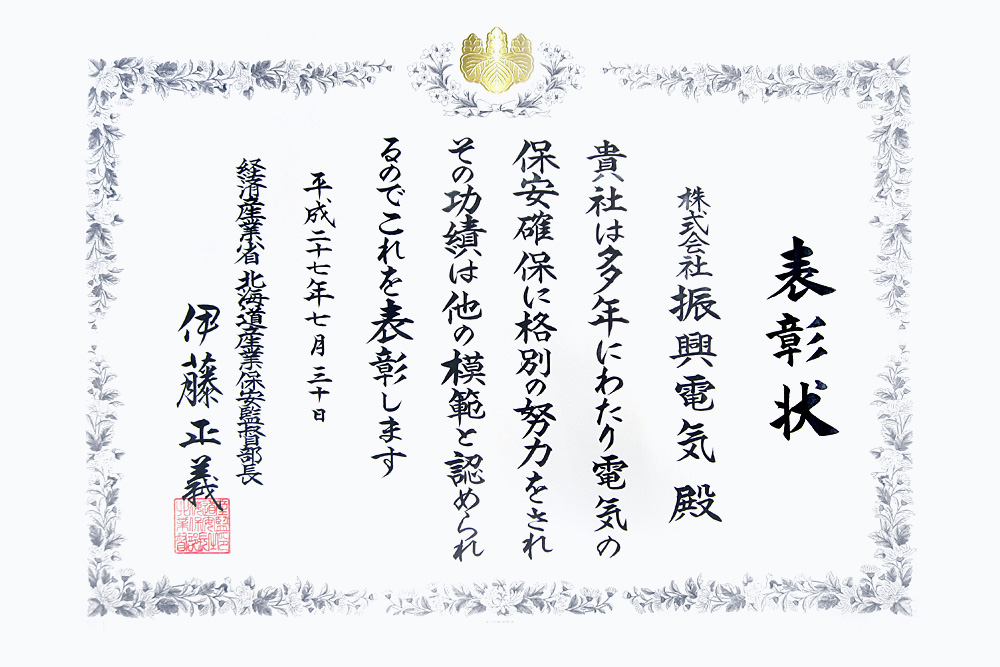 表彰状
株式会社振興電気殿
貴社は多年にわたり電気の
保安確保に格別の努力をされ
その功績は他の模範と認められ
るのでこれを表彰します
平成二十七年七月三十日
経済産業省北海道産業保安監督部長
伊藤正義